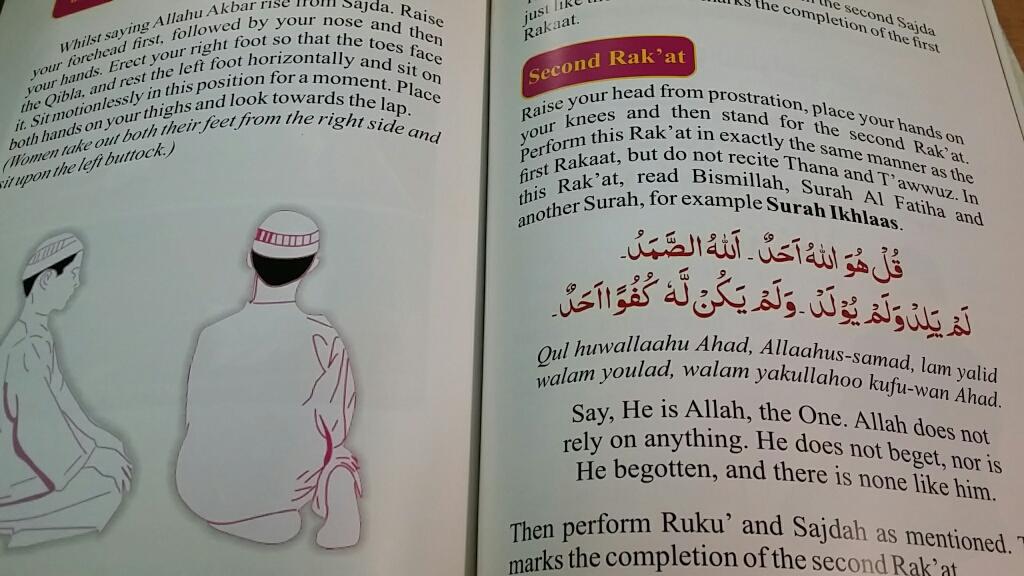 Whilst saying Allahu Akbar rise from Sajda. Raise
your forehead first, followed by your nose and then
your hands. Erect your right foot so that the toes face
the Qibla, and rest the left foot horizontally and sit on
it. Sit motionlessly in this position for a moment. Place
both hands on your thighs and look towards the lap.
(Women take out both their feet from the right side and
sit upon the left buttock.)
the second Sajda
just like marks the completion of the first
Rakaat.
Second Rak'at
Raise your head from prostration, place your hands on
your knees and then stand for the second Rak'at.
Perform this Rak'at in exactly the same manner as the
first Rakaat, but do not recite Thana and T'awwuz. In
this Rak'at, read Bismillah, Surah Al Fatiha and
another Surah, for example Surah Ikhlaas.
قُلْ هُوَ اللهُ اَحَدٌ۔ اَللهُ الصَّمَدُ۔
لَمْ يَلِدْ وَلَمْ يُوْلَدْ۔ وَلَمْ يَكُنْ لَّهٗ كُفُوًا اَحَدٌ۔
Qul huwallaahu Ahad, Allaahus-samad, lam yalid
walam youlad, walam yakullahoo kufu-wan Ahad.
Say, He is Allah, the One. Allah does not
rely on anything. He does not beget, nor is
He begotten, and there is none like him.
Then perform Ruku' and Sajdah as mentioned.
marks the completion of the second Rak'at